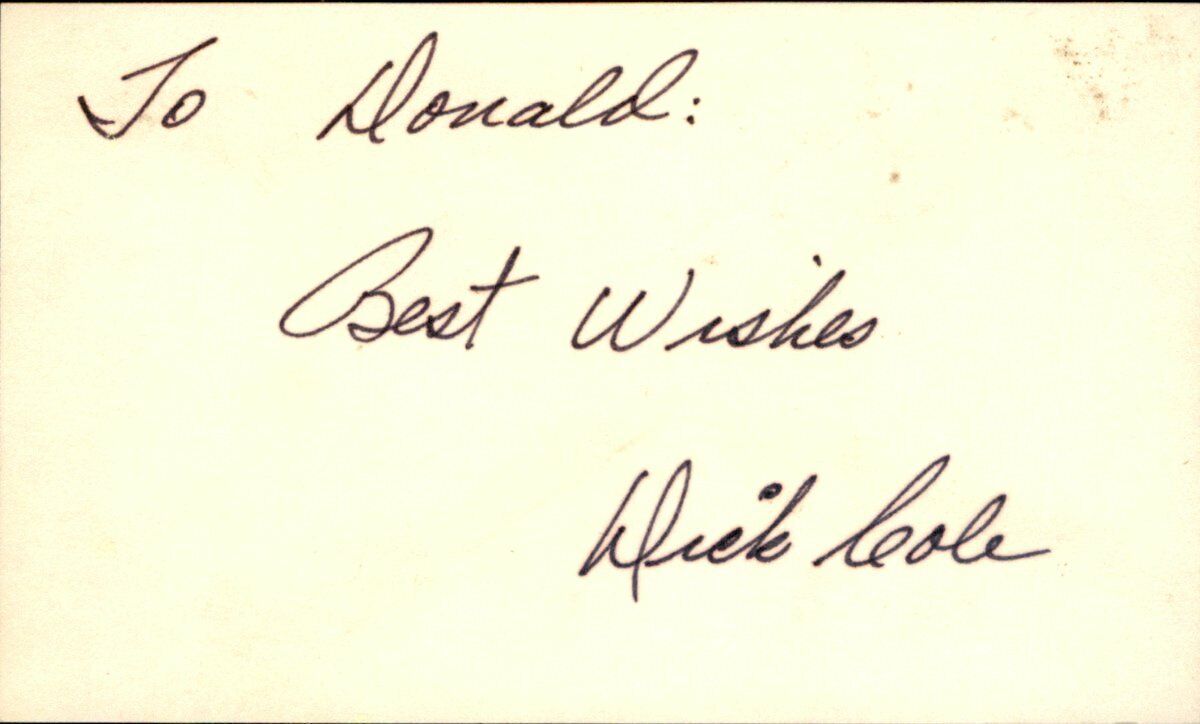 To Donald:
Best Wishes
Dick Cole